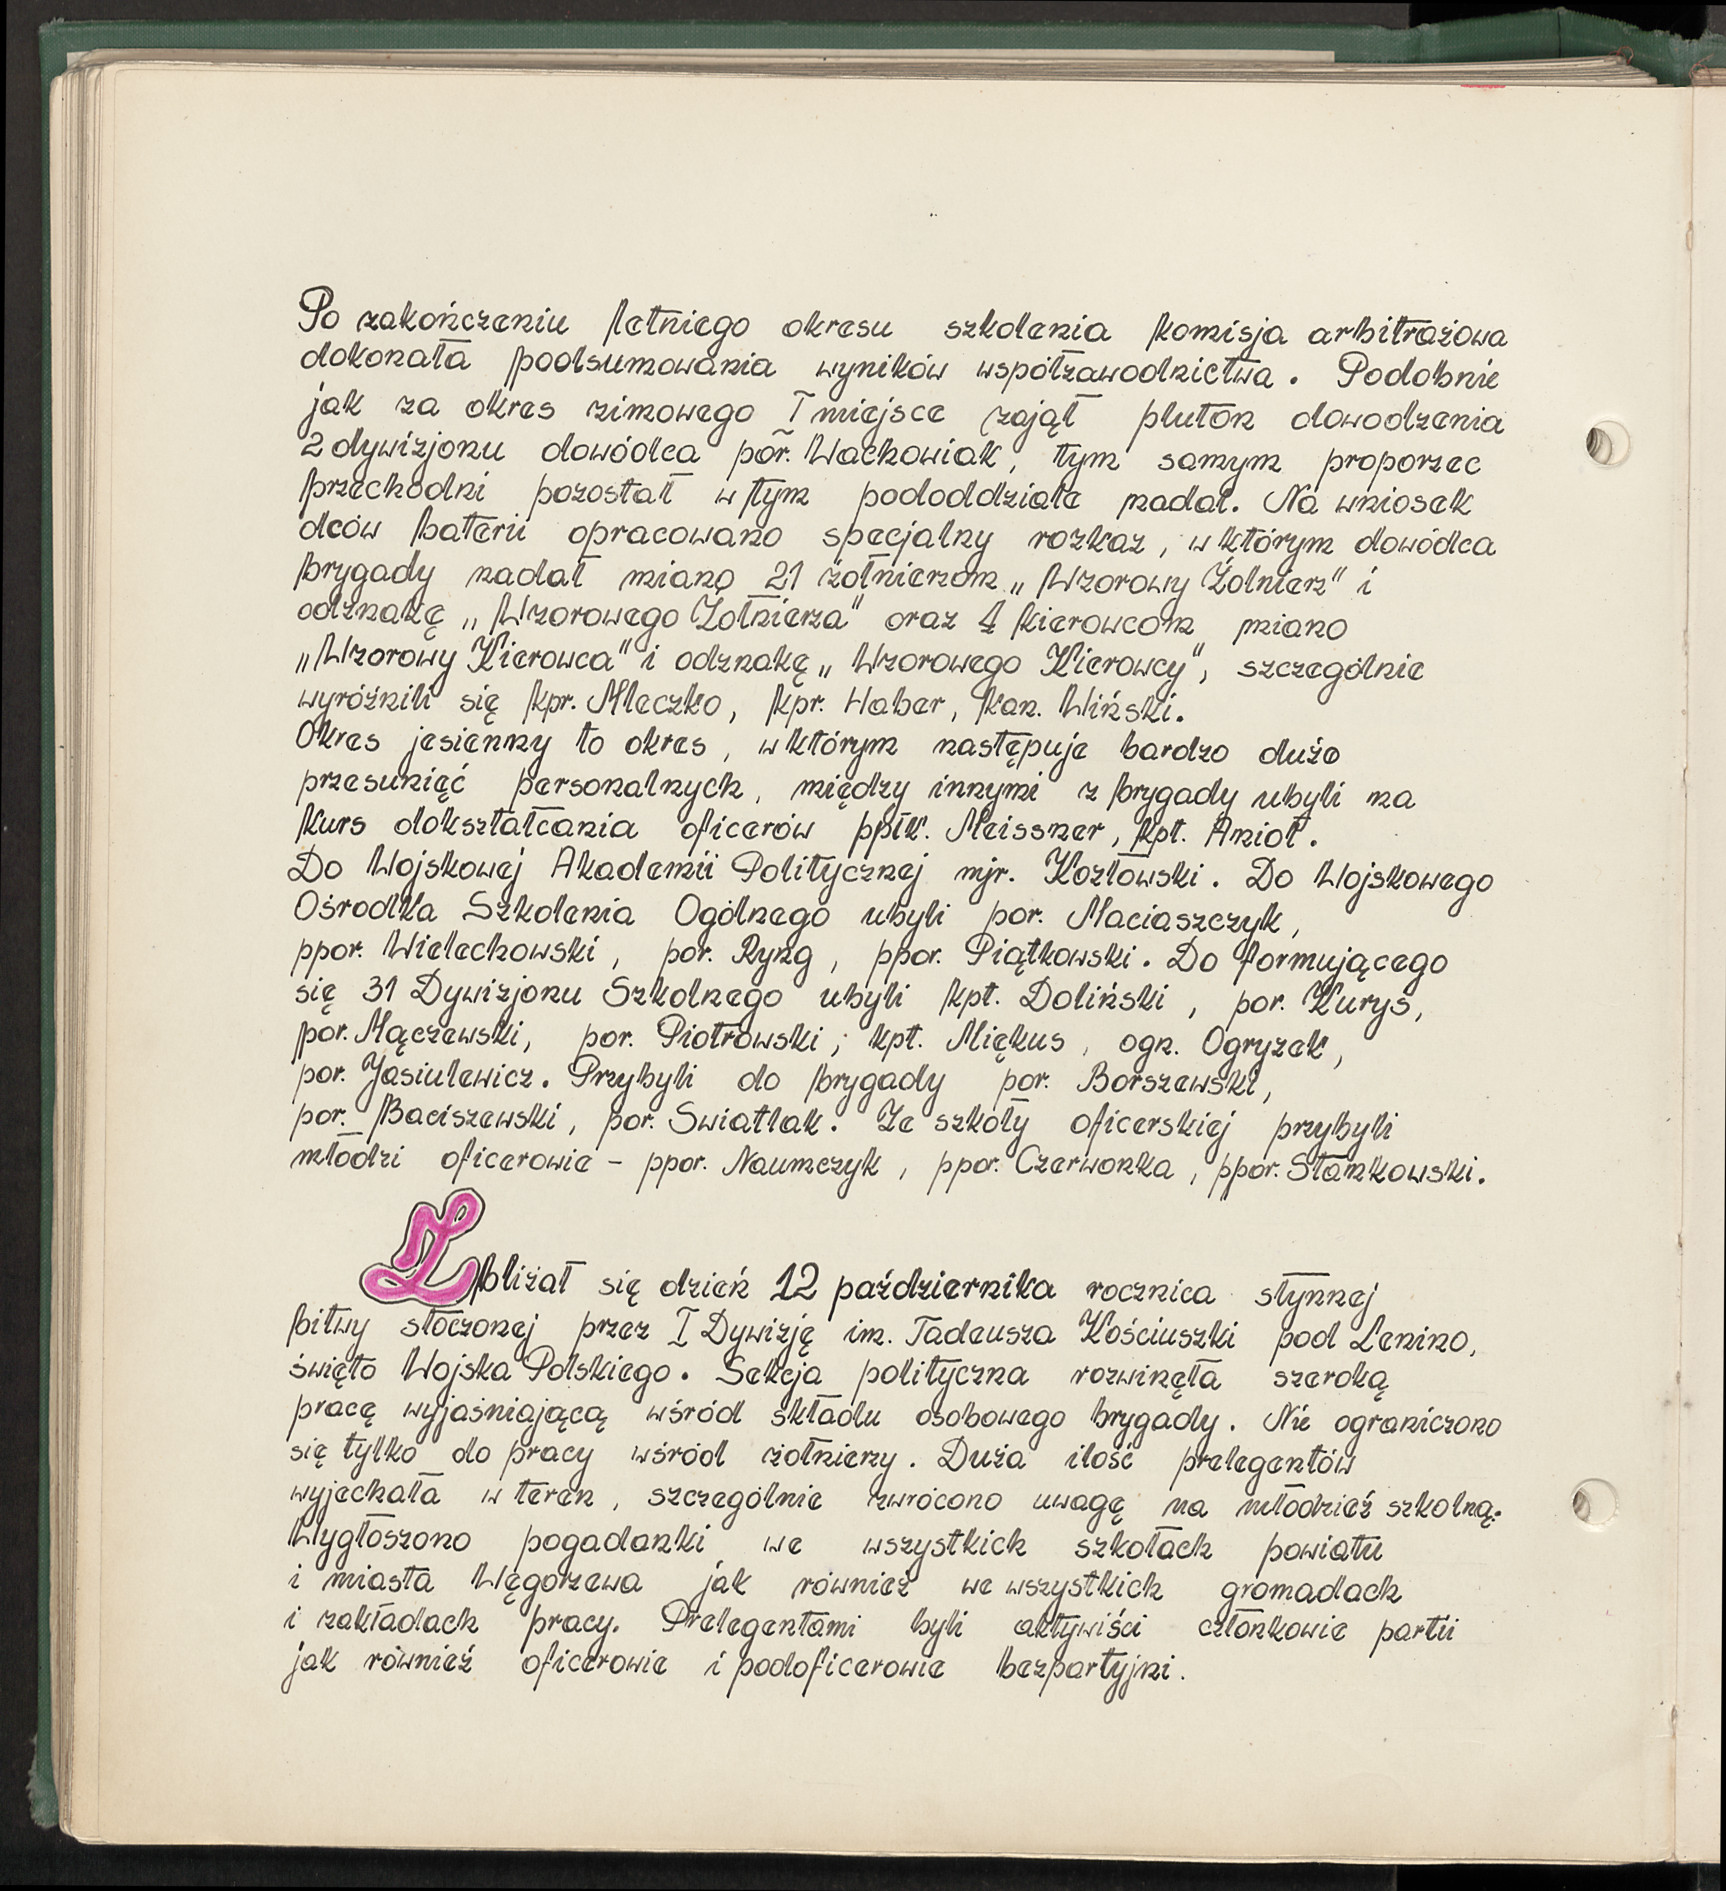 Po zakończeniu letniego okresu szkolenia komisja arbitrażowa
dokonała podsumowania wyników współzawodnictwa. Podobnie
jak za okres zimowego I miejsce zajął pluton dowodzenia
2 dywizjonu dowódca por. Wachowiak, tym samym proporzec
przechodni pozostał w tym pododdziale nadal. Na wniosek
dców baterii opracowano specjalny rozkaz, w którym dowódca
brygady nadał miano 21 żołnierzom „Wzorowy Żolnierz" i
odznakę „Wzorowego Żołnierza" oraz 4 kierowcom miano
„Wzorowy Kierowca" i odznakę „Wzorowego Kierowcy", szczególnie
wyróżnili się kpr. Mleczko, kpr. Haber, kan. Wiński.
Okres jesienny to okres, w którym następuje bardzo dużo
przesunięć personalnych, między innymi z brygady ubyli na
kurs dokształcania oficerów ppłk. Meissner, kpt. Anioł.
Do Wojskowej Akademii Politycznej mjr. Kozłowski. Do Wojskowego
Ośrodka Szkolenia Ogólnego ubyli por. Maciaszczyk,
ppor. Wielechowski, por. Ryng, ppor. Piątkowski. Do formującego
się 31 Dywizjonu Szkolnego ubyli kpt. Doliński, por. Kuryś,
por. Mączewski, por. Piotrowski, kpt. Miękus, ogn. Ogryzek,
por. Jasiulewicz. Przybyli do brygady por. Borszewski,
por. Baciszewski, por. Swiatlak. Ze szkoły oficerskiej przybyli
młodzi oficerowie - ppor. Naumczyk, ppor. Czerwonka, ppor. Stankowski.
Zbliżał się dzień 12 października rocznica słynnej
bitwy stoczonej przez I Dywizję im. Tadeusza Kościuszki pod Lenino,
święto Wojska Polskiego. Sekcja polityczna rozwinęła szeroką
pracę wyjaśniającą wśród składu osobowego brygady. Nie ograniczono
się tylko do pracy wśród żołnierzy. Duża ilość prelegentów
wyjechała w teren, szczególnie zwrócono uwagę na młodzież szkolną.
Wygłoszono pogadanki we wszystkich szkołach powiatu
i miasta Węgorzewa jak również we wszystkich gromadach
i zakładach pracy. Prelegentami byli aktywiści członkowie partii
jak również oficerowie i podoficerowie bezpartyjni.